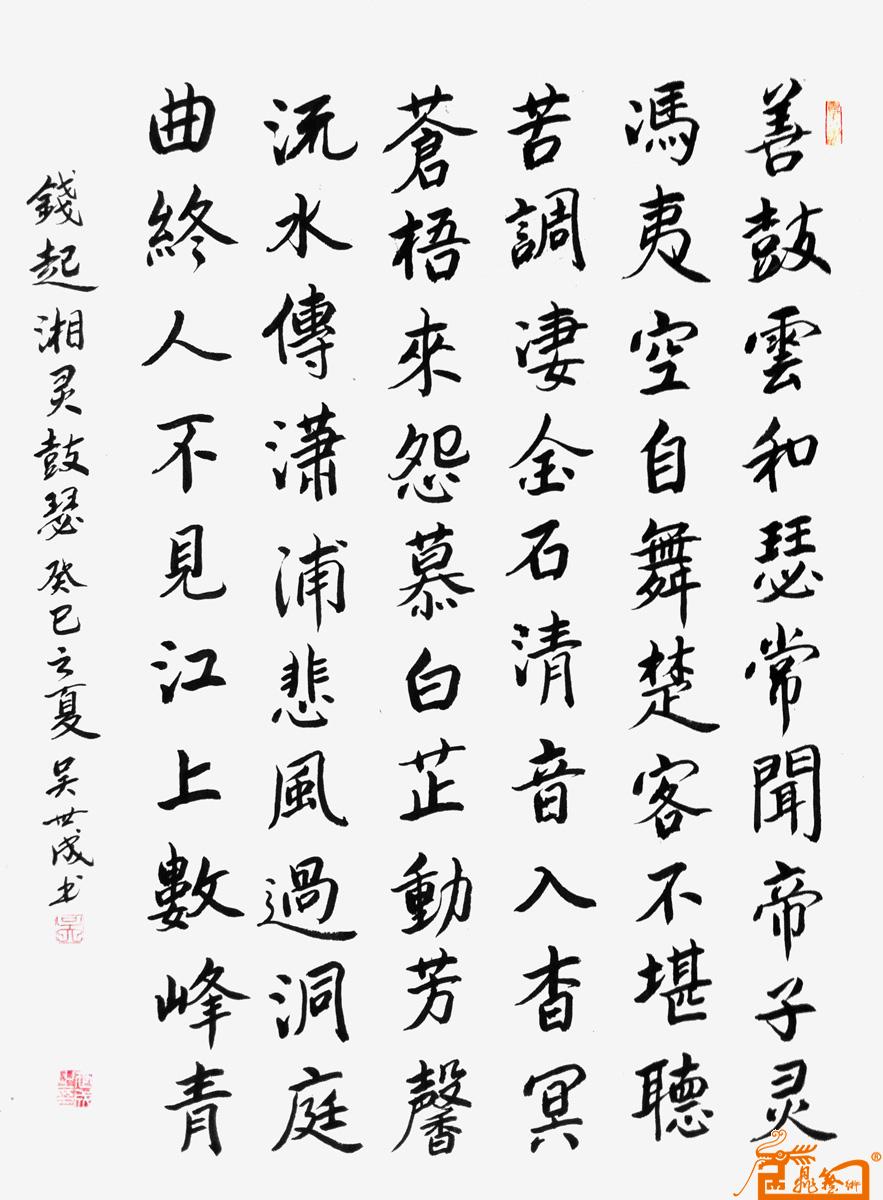 善鼓雲和瑟常聞帝子灵
馮夷空自舞楚客不堪聽
苦調凄金石清音入杳冥
蒼梧来怨慕白芷動芳馨
流水傳潇浦悲風過洞庭
曲終人不見江上數峰青
錢起湘灵鼓瑟癸巳之夏吴世成书